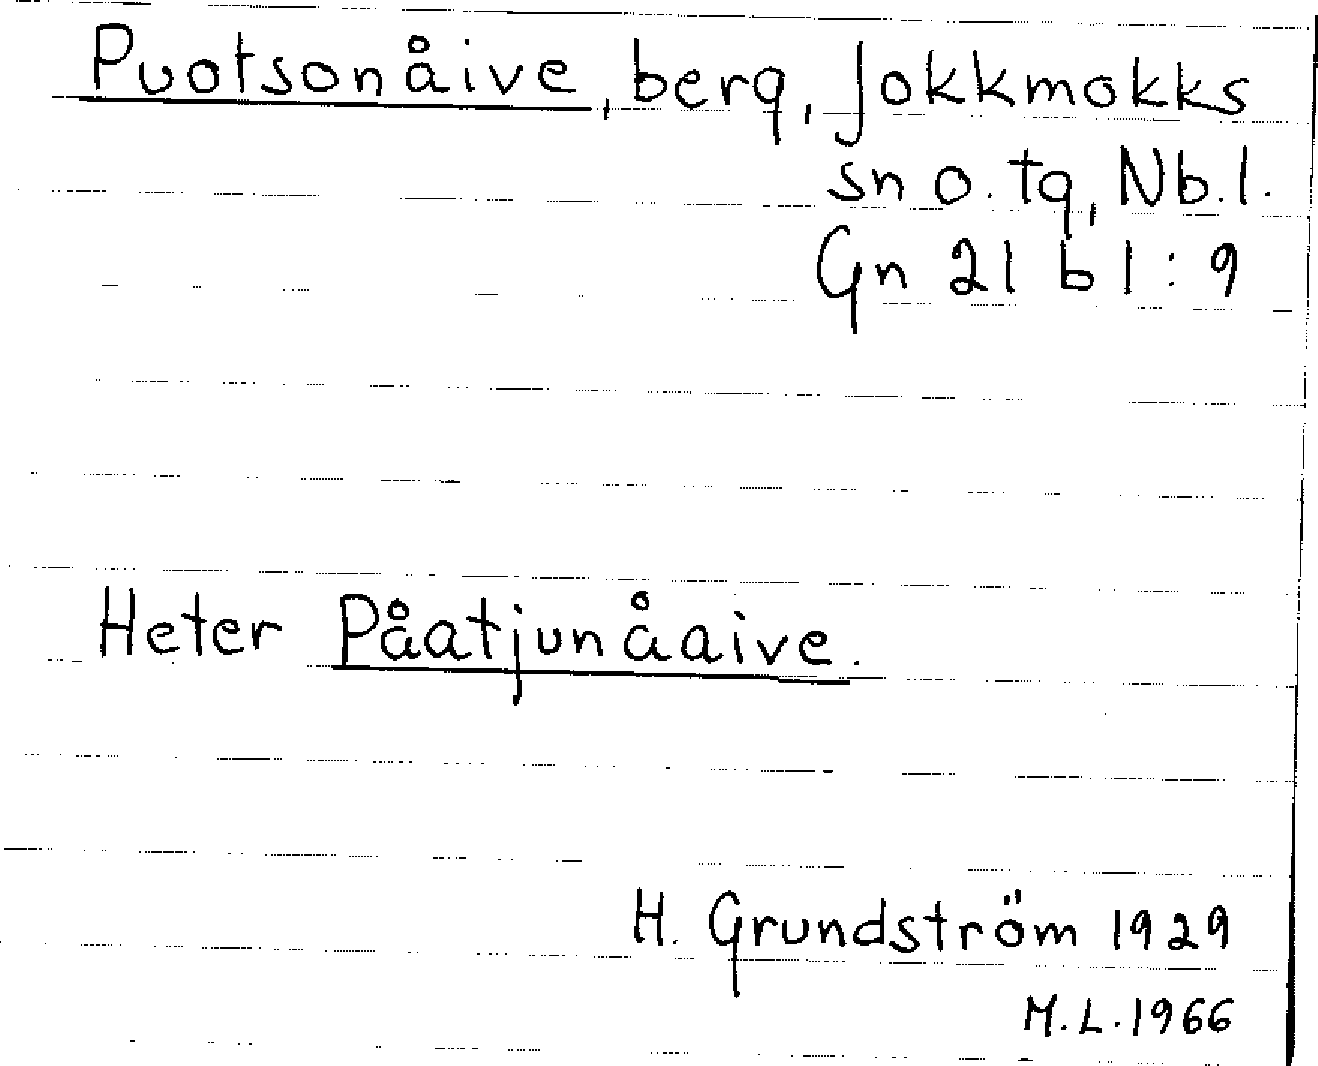 Puotsonåive, berg, Jokkmokks
sn o. tg, Nb.l.
Gn 21 b 1:9
Heter Påatjunåaive.
H. Grundström 1929
M.L. 1966